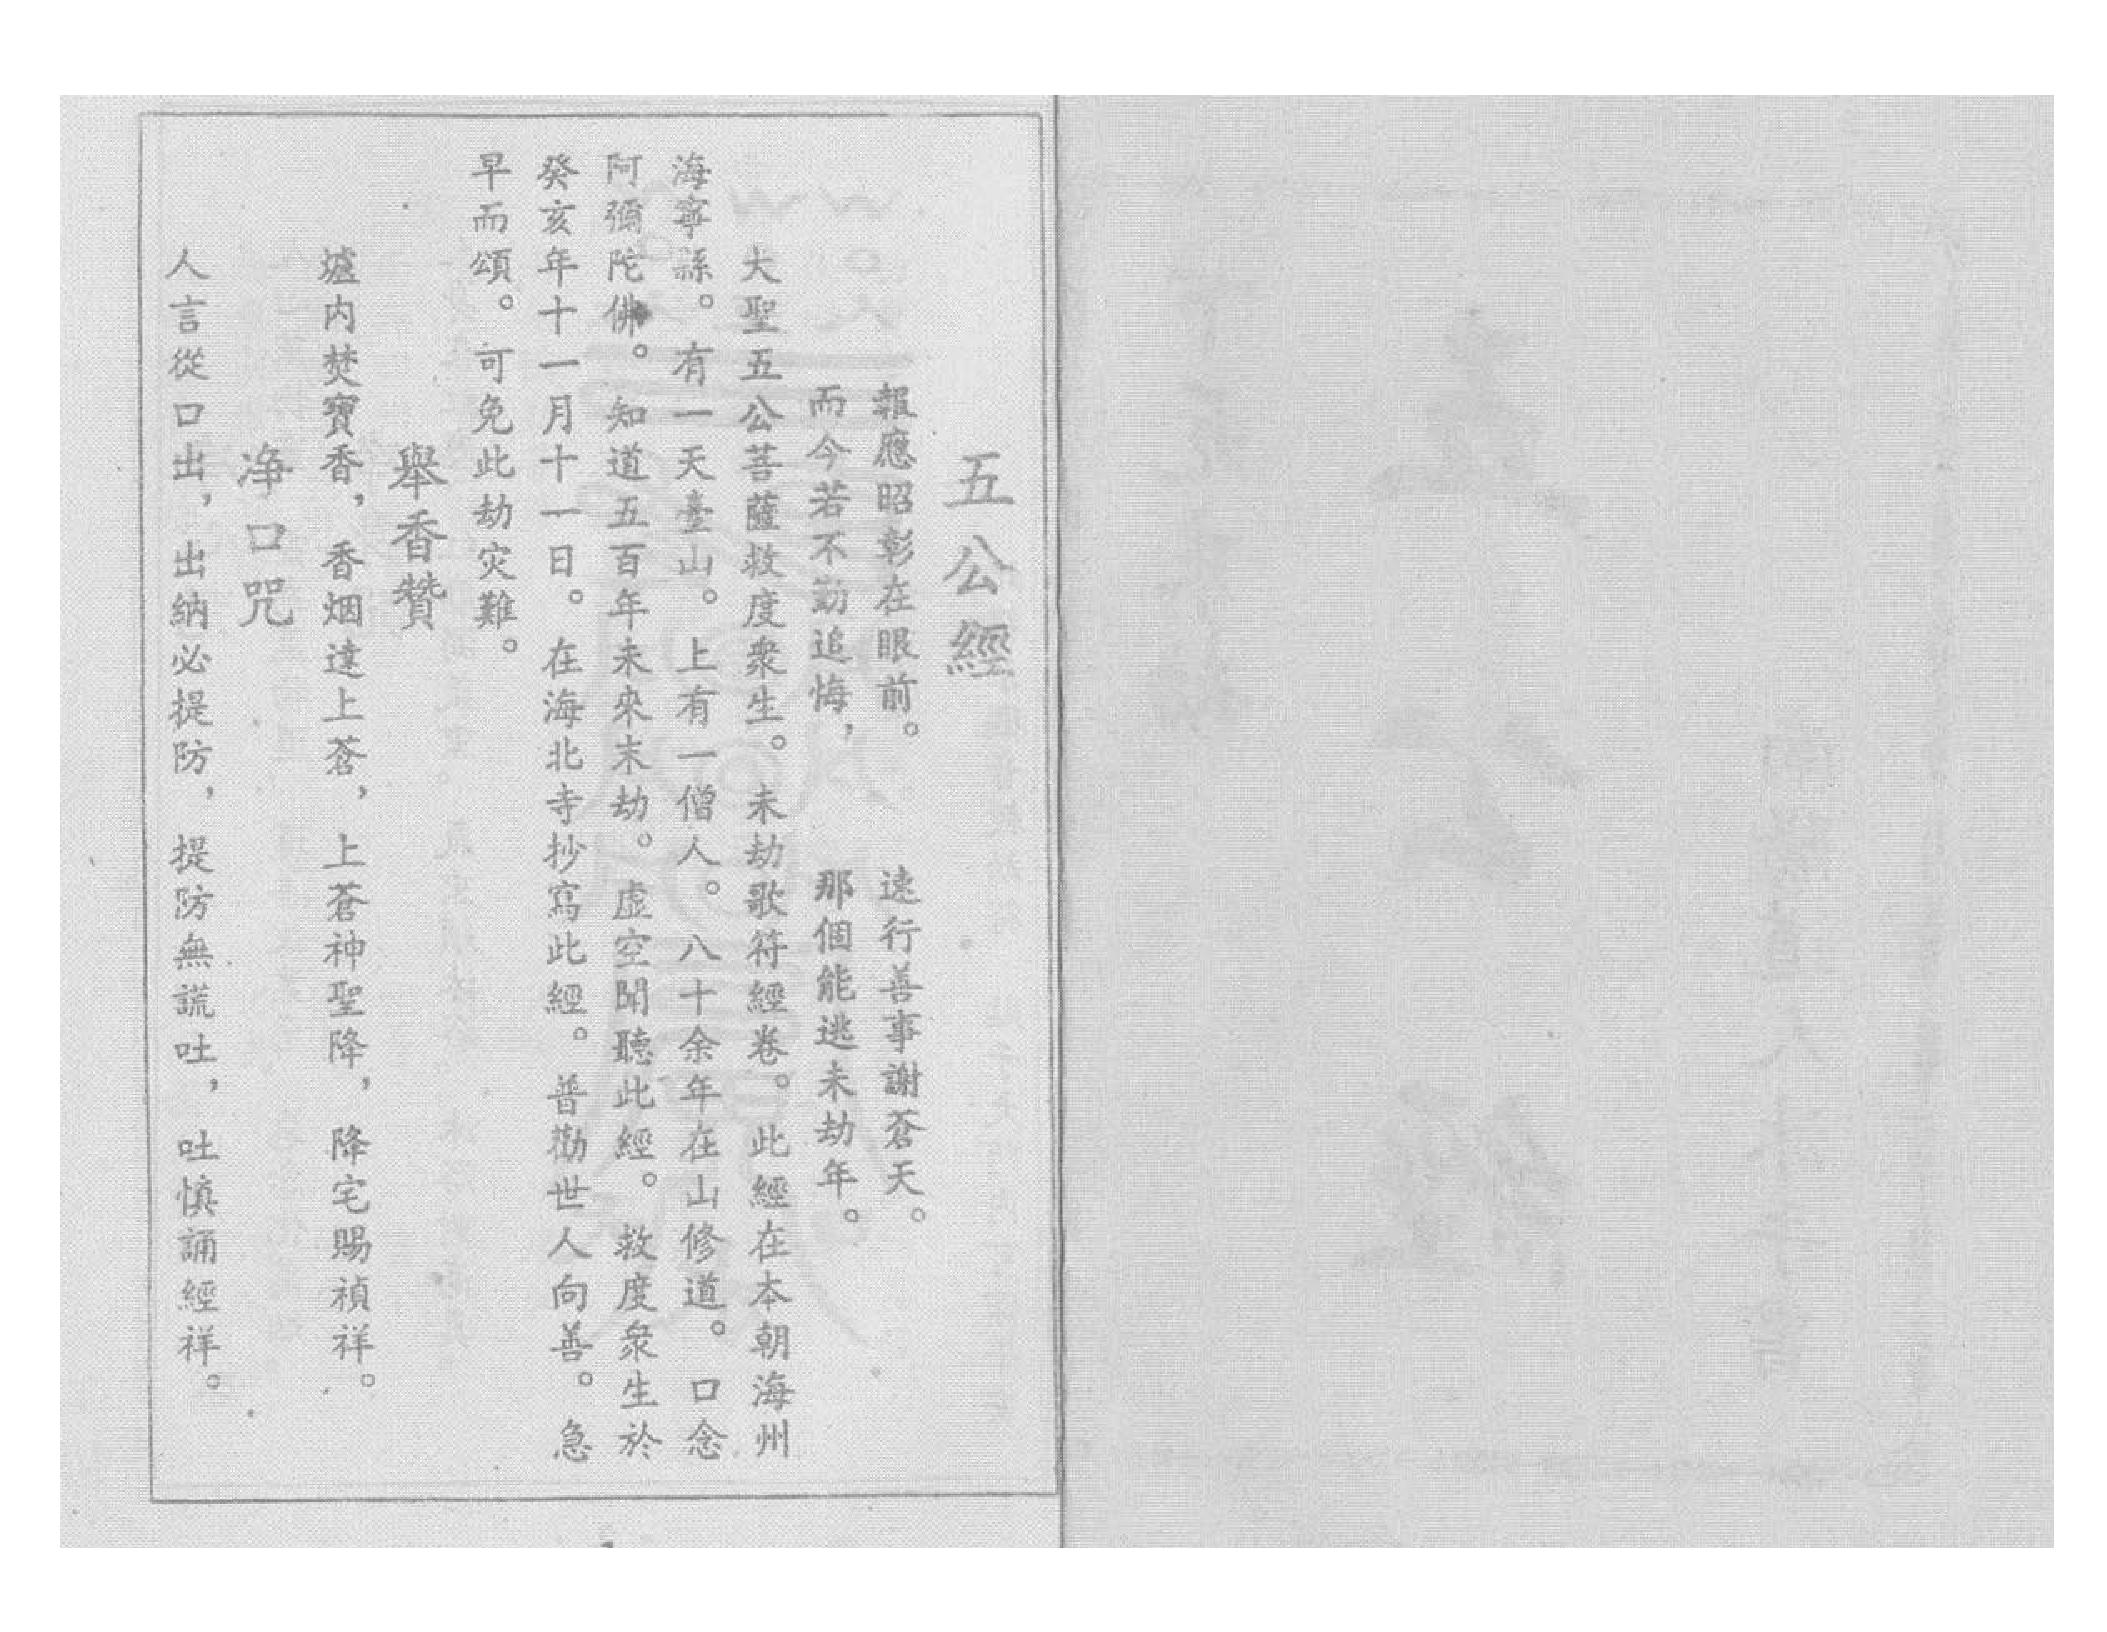 五公經
報應昭彰在眼前。 遠行善事謝蒼天。
而今若不勤追悔， 那個能逃末劫年。
大聖五公菩薩救度衆生。末劫歌符經卷。此經在本朝海州
海寧縣。有一天臺山。上有一僧人。八十余年在山修道。口念
阿彌陀佛。知道五百年未來末劫。虛空聞聽此經。救度衆生於
癸亥年十一月十一日。在海北寺抄寫此經。普勸世人向善。急
早而頌。可免此劫灾難。
舉香贊
爐内焚寶香，香烟達上蒼，上蒼神聖降，降宅賜禎祥。
净口咒
人言從口出，出納必提防，提防無謊吐，吐慎誦經祥。